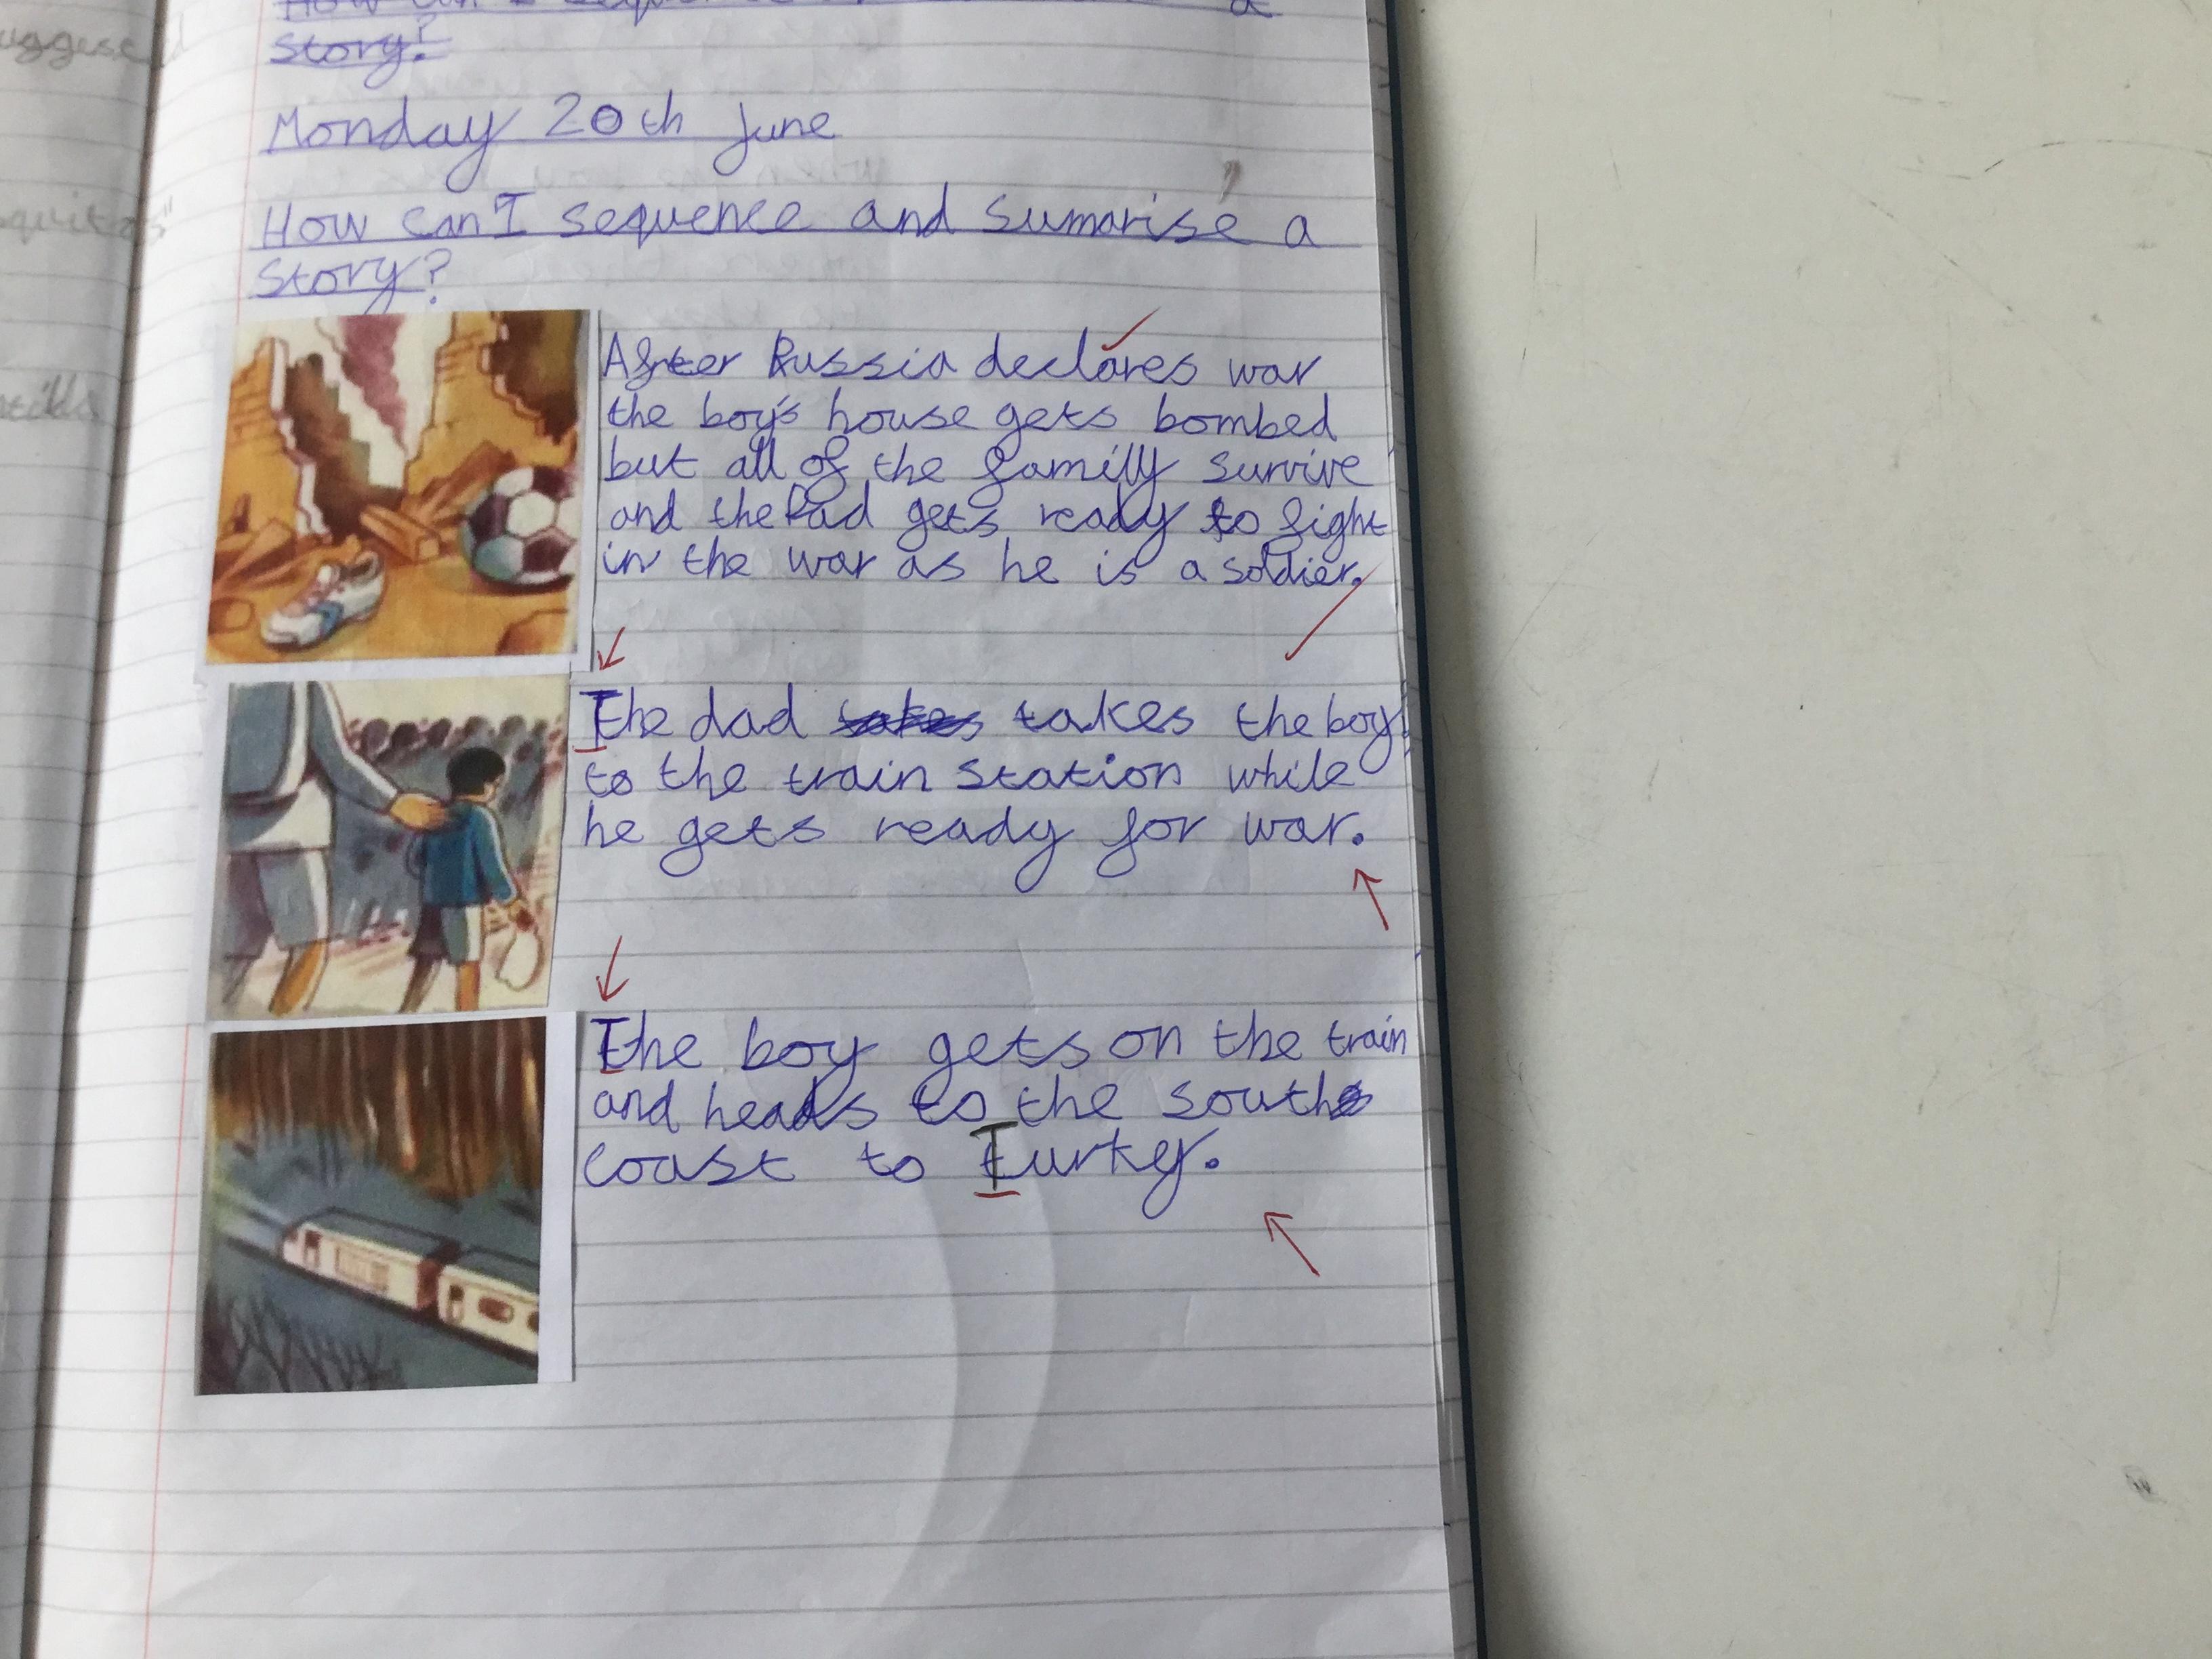 Story?
Monday 20th June
How can I sequence and Sumarise a
Story?
After Russia declares war
the boy's house gets bombed
but all of the familly survive
and the Dad gets ready to fight
in the war as he is a soldier.
The dad takes takes the boy
to the train station while
he gets ready for war.
The boy gets on the train
and heads to the south
coast to Turkey.